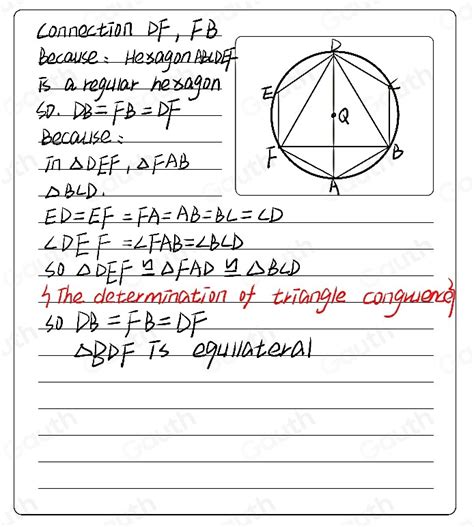 Connection DF, FB
Because: Hexagon ABCDEF
is a regular hexagon
so. DB=FB=DF
Because:
in △DEF, △FAB
△BCD.
ED=EF=FA=AB=BC=CD
∠DEF=∠FAB=∠BCD
so △DEF ≌ △FAD ≌ △BCD
{The determination of triangle congruence}
so DB=FB=DF
△BDF is equilateral
D
E
C
Q
F
B
A
Gauth